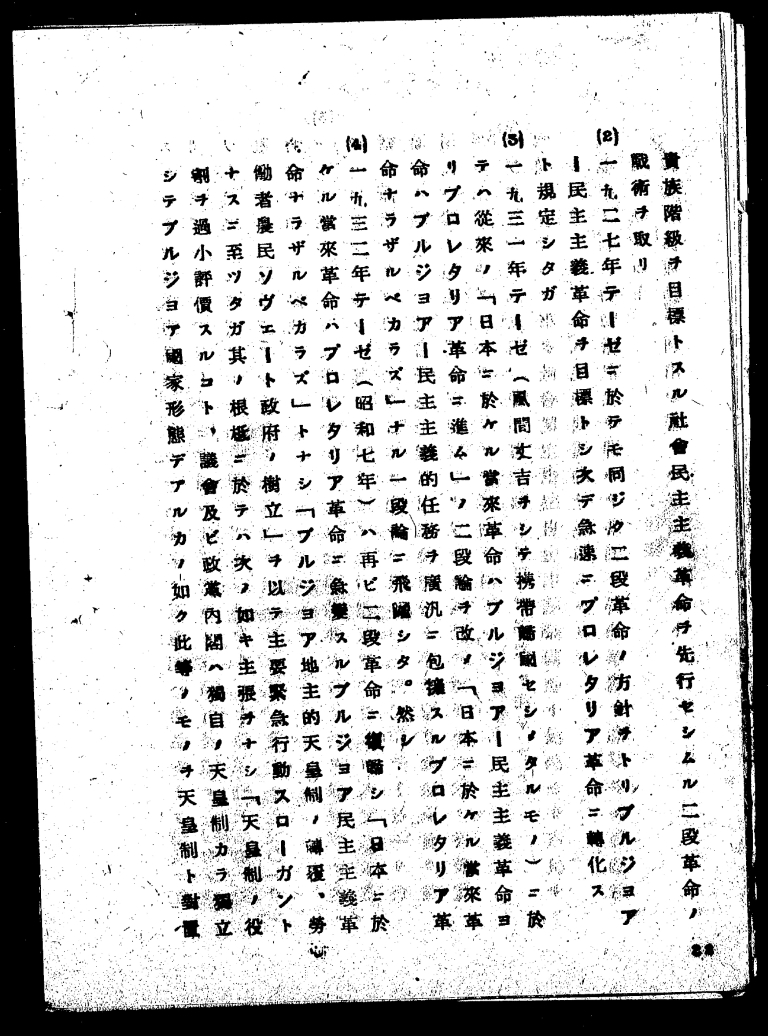 貴族階級ヲ目標トスル社會民主主義革命ヲ先行セシムル二段革命ノ
戰術ヲ取リ
(2) 一九二七年テーゼニ於テモ同ジク二段革命ノ方針ヲトリブルジヨア
ー民主主義革命ヲ目標トシ次デ急速ニプロレタリア革命ニ轉化ス
ト規定シタガ
(3) 一九三一年テーゼ(風間丈吉ヲシテ携帶歸國セシメタルモノ)ニ於
テハ從來ノ「日本ニ於ケル當來革命ハブルジヨアー民主主義革命ヨ
リプロレタリア革命ニ進ム」ノ二段論ヲ改メ「日本ニ於ケル當來革
命ハブルジヨアー民主主義的任務ヲ廣汎ニ包擁スルプロレタリア革
命ナラザルベカラズ」ナル一段論ニ飛躍シタ。然シ
(4) 一九三二年テーゼ(昭和七年)ハ再ビ二段革命ニ復歸シ「日本ニ於
ケル當來革命ハプロレタリア革命ニ急變スルブルジヨア民主主義革
命ナラザルベカラズ」トナシ「ブルジヨア地主的天皇制ノ轉覆、勞
働者農民ソヴエート政府ノ樹立」ヲ以テ主要緊急行動スローガント
ナスニ至ツタガ其ノ根柢ニ於テハ次ノ如キ主張ヲナシ「天皇制ノ役
割ヲ過小評價スルコト、議會及ビ政黨內閣ハ獨自ノ天皇制カラ獨立
シテブルジヨア國家形態デアルカノ如ク此等ノモノヲ天皇制ト對置